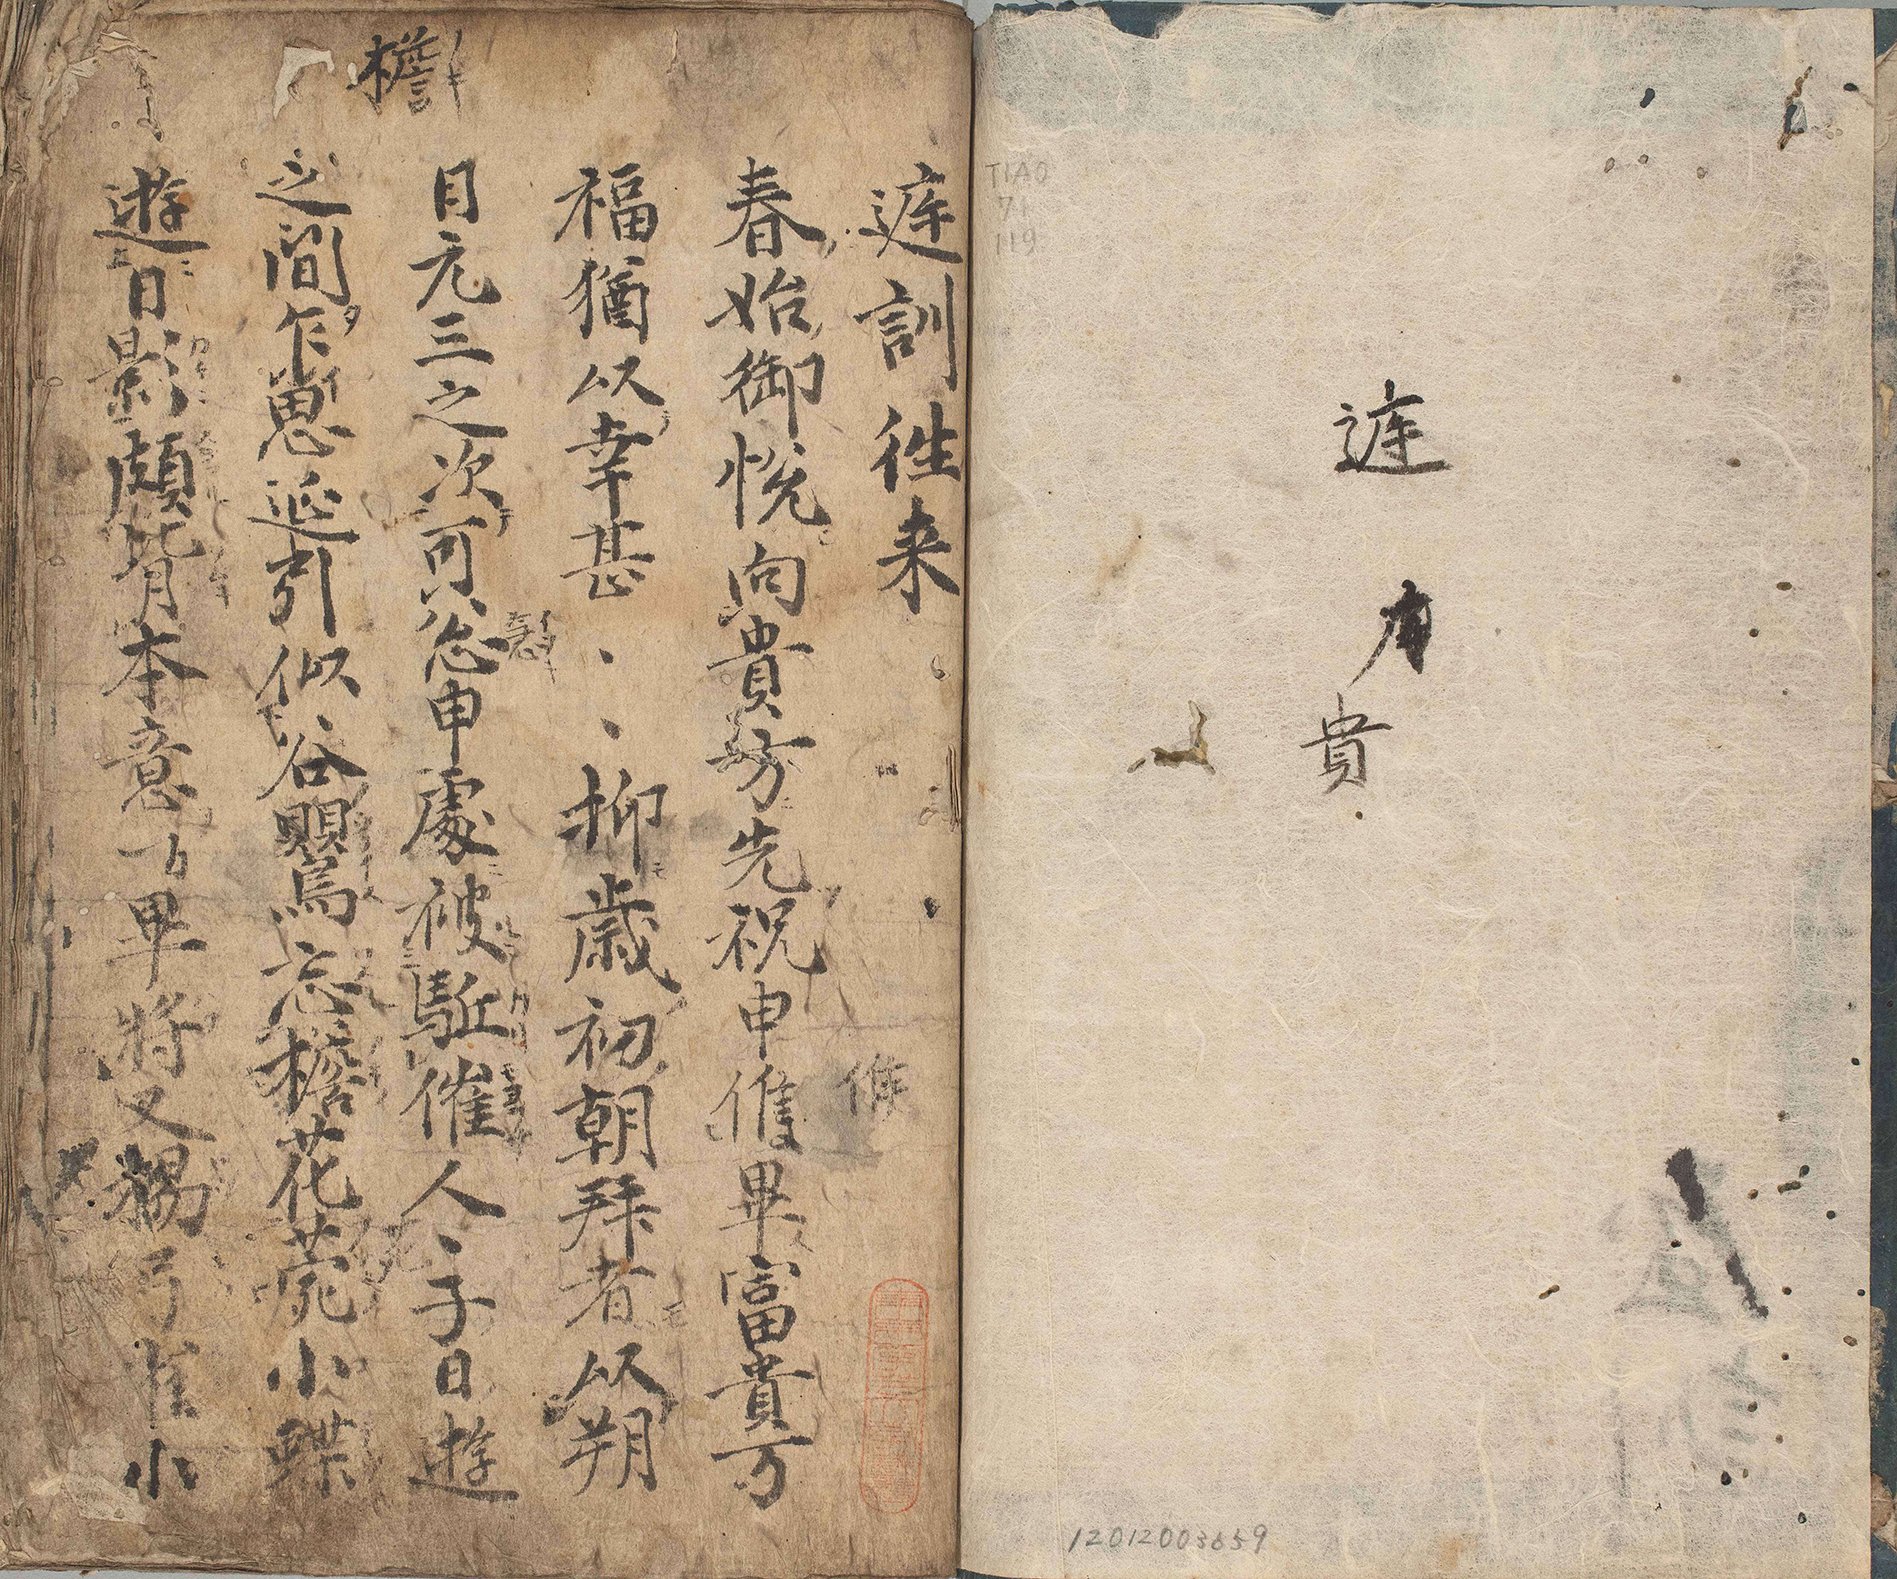 遮
貴
TIAO
71
119
12012003659
遮訓往来
春始御悦向貴方先祝申候畢富貴万
福猶以幸甚〻〻抑歳初朝拜者以朔
目元三之次可忩申處被駈催人〻子日遊
之間乍思延引似谷鸎忘檐花菀小蝶
遊日影頗背本意古畢將又楊弓雀小
檐
候